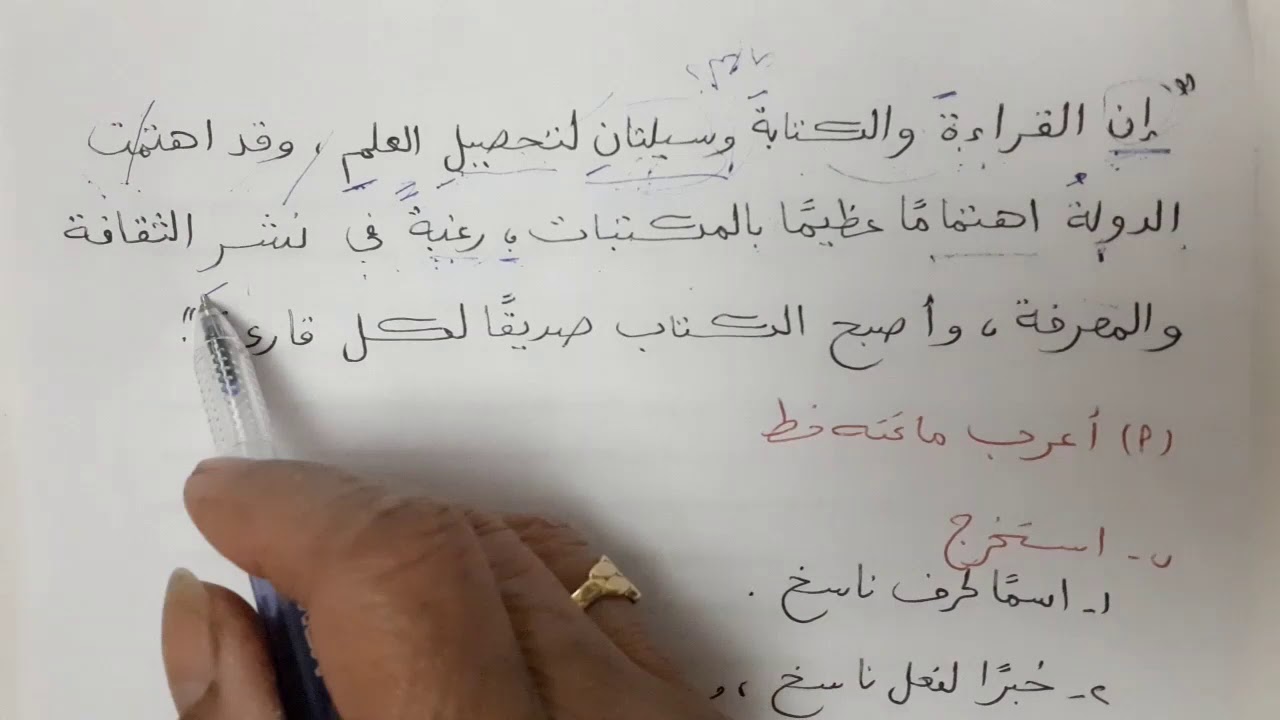 "إن القراءةَ والكتابةَ وسيلتانِ لتحصيلِ العلمِ، وقد اهتمت
الدولةُ اهتمامًا عظيمًا بالمكتبات، رغبةً في نشر الثقافة
والمعرفة، وأصبح الكتاب صديقًا لكل قارئ."
(P) أعرب ما تحته خط
ب- استخرج
١- اسمًا لحرف ناسخ.
٢- خبرًا لفعل ناسخ،